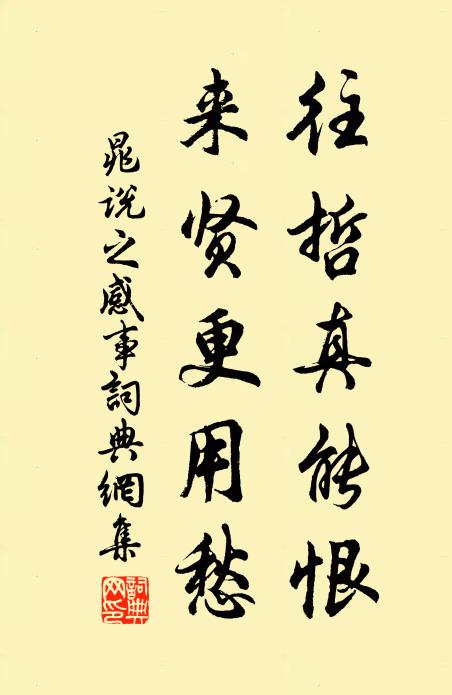 往哲真能恨
来贤更用愁
晁说之感事詞典網集
詞典
网印